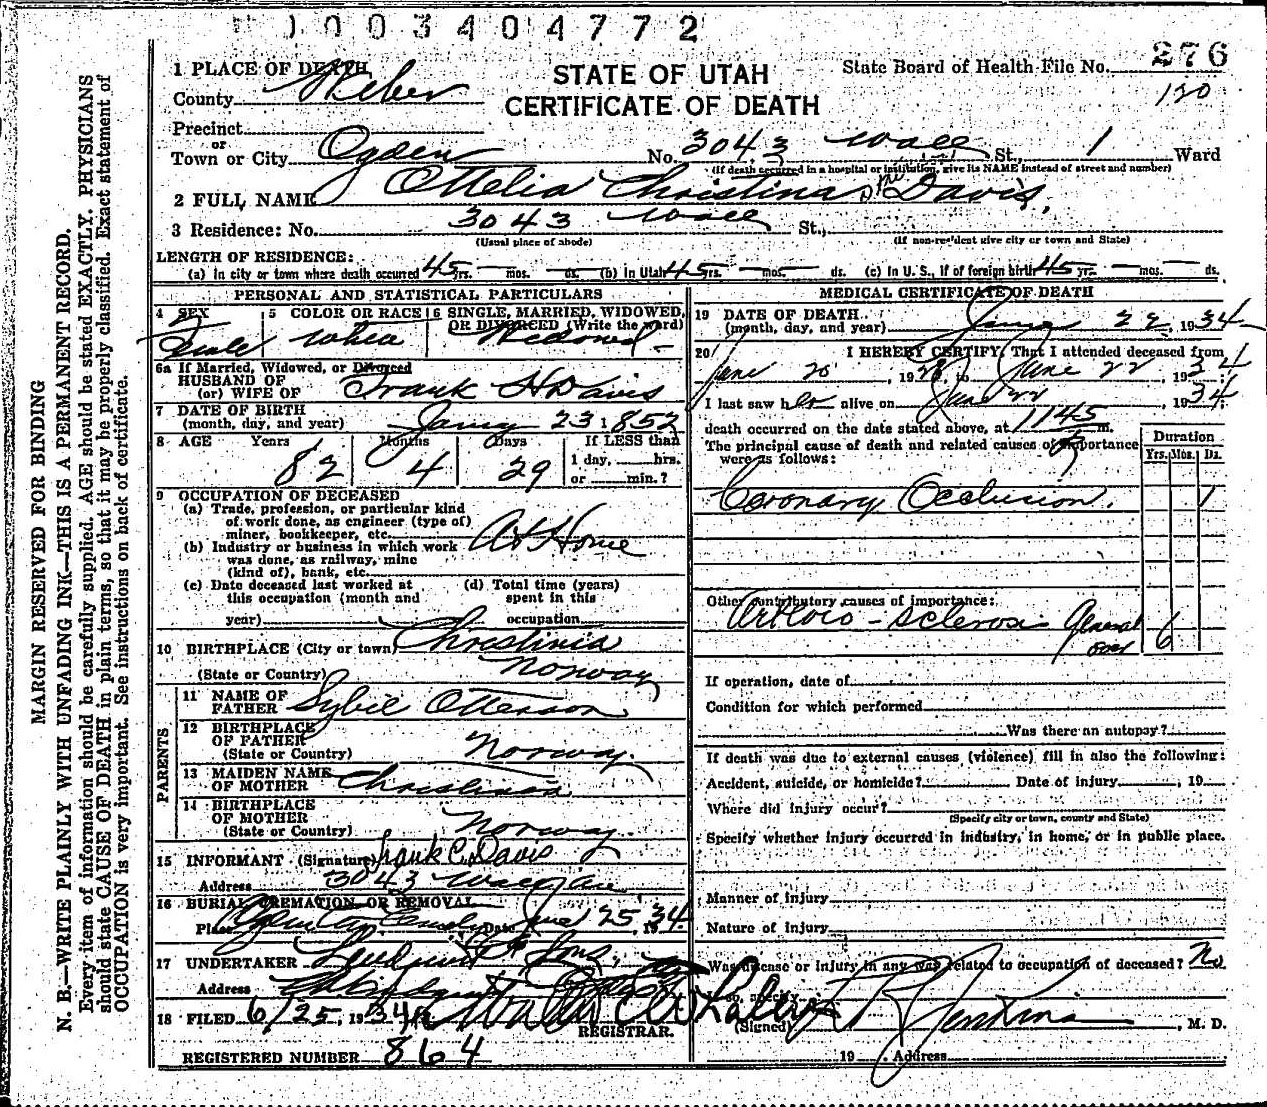 1003404772
276
1 PLACE OF DEATH
STATE OF UTAH
State Board of Health File No.
County Weber
CERTIFICATE OF DEATH
120
Precinct
or
Town or City Ogden No. 3043 Wall St., 1 Ward
(If death occurred in a hospital or institution, give its NAME instead of street and number)
2 FULL NAME Ottelia Christina Davis.
3 Residence: No. 3043 Wall St.,
(Usual place of abode) (If non-resident give city or town and State)
LENGTH OF RESIDENCE:
(a) In city or town where death occurred 45 yrs. — mos. — ds. (b) In Utah 45 yrs. — mos. — ds. (c) In U. S., if of foreign birth 45 yr. — mos. — ds.
PERSONAL AND STATISTICAL PARTICULARS
4 SEX 5 COLOR OR RACE 6 SINGLE, MARRIED, WIDOWED, OR DIVORCED (Write the word)
Female White Widowed
6a If Married, Widowed, or Divorced
HUSBAND OF
(or) WIFE OF Frank H Davis
7 DATE OF BIRTH
(month, day, and year) 23 1852
8 AGE Years Months Days If LESS than
82 4 29 1 day, hrs.
or min.?
9 OCCUPATION OF DECEASED
(a) Trade, profession, or particular kind
of work done, as engineer (type of)
miner, bookkeeper, etc. At Home
(b) Industry or business in which work
was done, as railway, mine
(kind of), bank, etc.
(c) Date deceased last worked at (d) Total time (years)
this occupation (month and spent in this
year) occupation
10 BIRTHPLACE (City or town) Christinia
(State or Country) Norway
PARENTS
11 NAME OF
FATHER Sybil Otterson
12 BIRTHPLACE
OF FATHER
(State or Country) Norway
13 MAIDEN NAME
OF MOTHER Christina
14 BIRTHPLACE
OF MOTHER
(State or Country) Norway.
15 INFORMANT (Signature) Frank C. Davis
Address 3043 Wall Ave
16 BURIAL, CREMATION OR REMOVAL
Place Date June 25 1934.
17 UNDERTAKER Lindquist & Sons,
Address
18 FILED 6/25, 1934
REGISTRAR.
REGISTERED NUMBER 864
MEDICAL CERTIFICATE OF DEATH
19 DATE OF DEATH
(month, day, and year) 22, 1934
20 I HEREBY CERTIFY, That I attended deceased from
June 20, 19 to June 22, 1934
I last saw her alive on June 22, 1934
death occurred on the date stated above, at 1145 m.
The principal cause of death and related causes of importance
were as follows:
Duration
Yrs. Mos. Ds.
Coronary Occlusion. 1
Other contributory causes of importance:
Arterio-sclerosis General 6
If operation, date of
Condition for which performed
Was there an autopsy?
If death was due to external causes (violence) fill in also the following:
Accident, suicide, or homicide? Date of injury , 19
Where did injury occur?
(Specify city or town, county and State)
Specify whether injury occurred in industry, in home, or in public place.
Manner of injury
Nature of injury
Was disease or injury in any way related to occupation of deceased? No
If so, specify
(Signed) Jenkins, M. D.
19 . Address
MARGIN RESERVED FOR BINDING
N. B.—WRITE PLAINLY WITH UNFADING INK—THIS IS A PERMANENT RECORD.
Every item of information should be carefully supplied. AGE should be stated EXACTLY. PHYSICIANS
should state CAUSE OF DEATH in plain terms, so that it may be properly classified. Exact statement of
OCCUPATION is very important. See instructions on back of certificate.